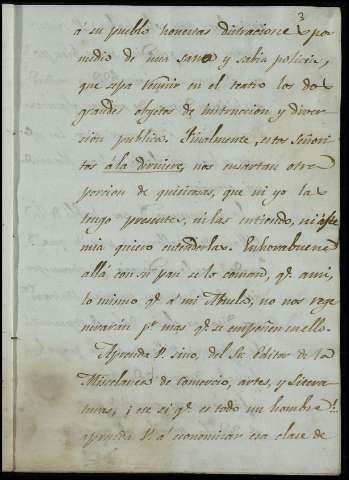 3
á su pueblo honestas distraciones por
medio de una sana y sabia policia,
que sepa reunir en el teatro los dos
grandes objetos de instruccion y diver-
sion publica. Finalmente, estos Señori-
tos á la derniere, nos ensartan otra
porcion de quisicosas, que ni yo las
tengo presente, ni las entiendo, ni
mia quiero entenderlas. Enhorabuena
allá con su pan se lo coman, qe. a mi,
lo mismo qe. á mi Abuelo, no nos rege-
nerarán pr. mas qe. se empeñen en ello.
Aprenda V. sino, del Sr. Editor de la
Miscelanea de Comercio, artes, y litera-
tura, ¡ese si qe. es todo un hombre!
aprenda V. á economizar esa clase de